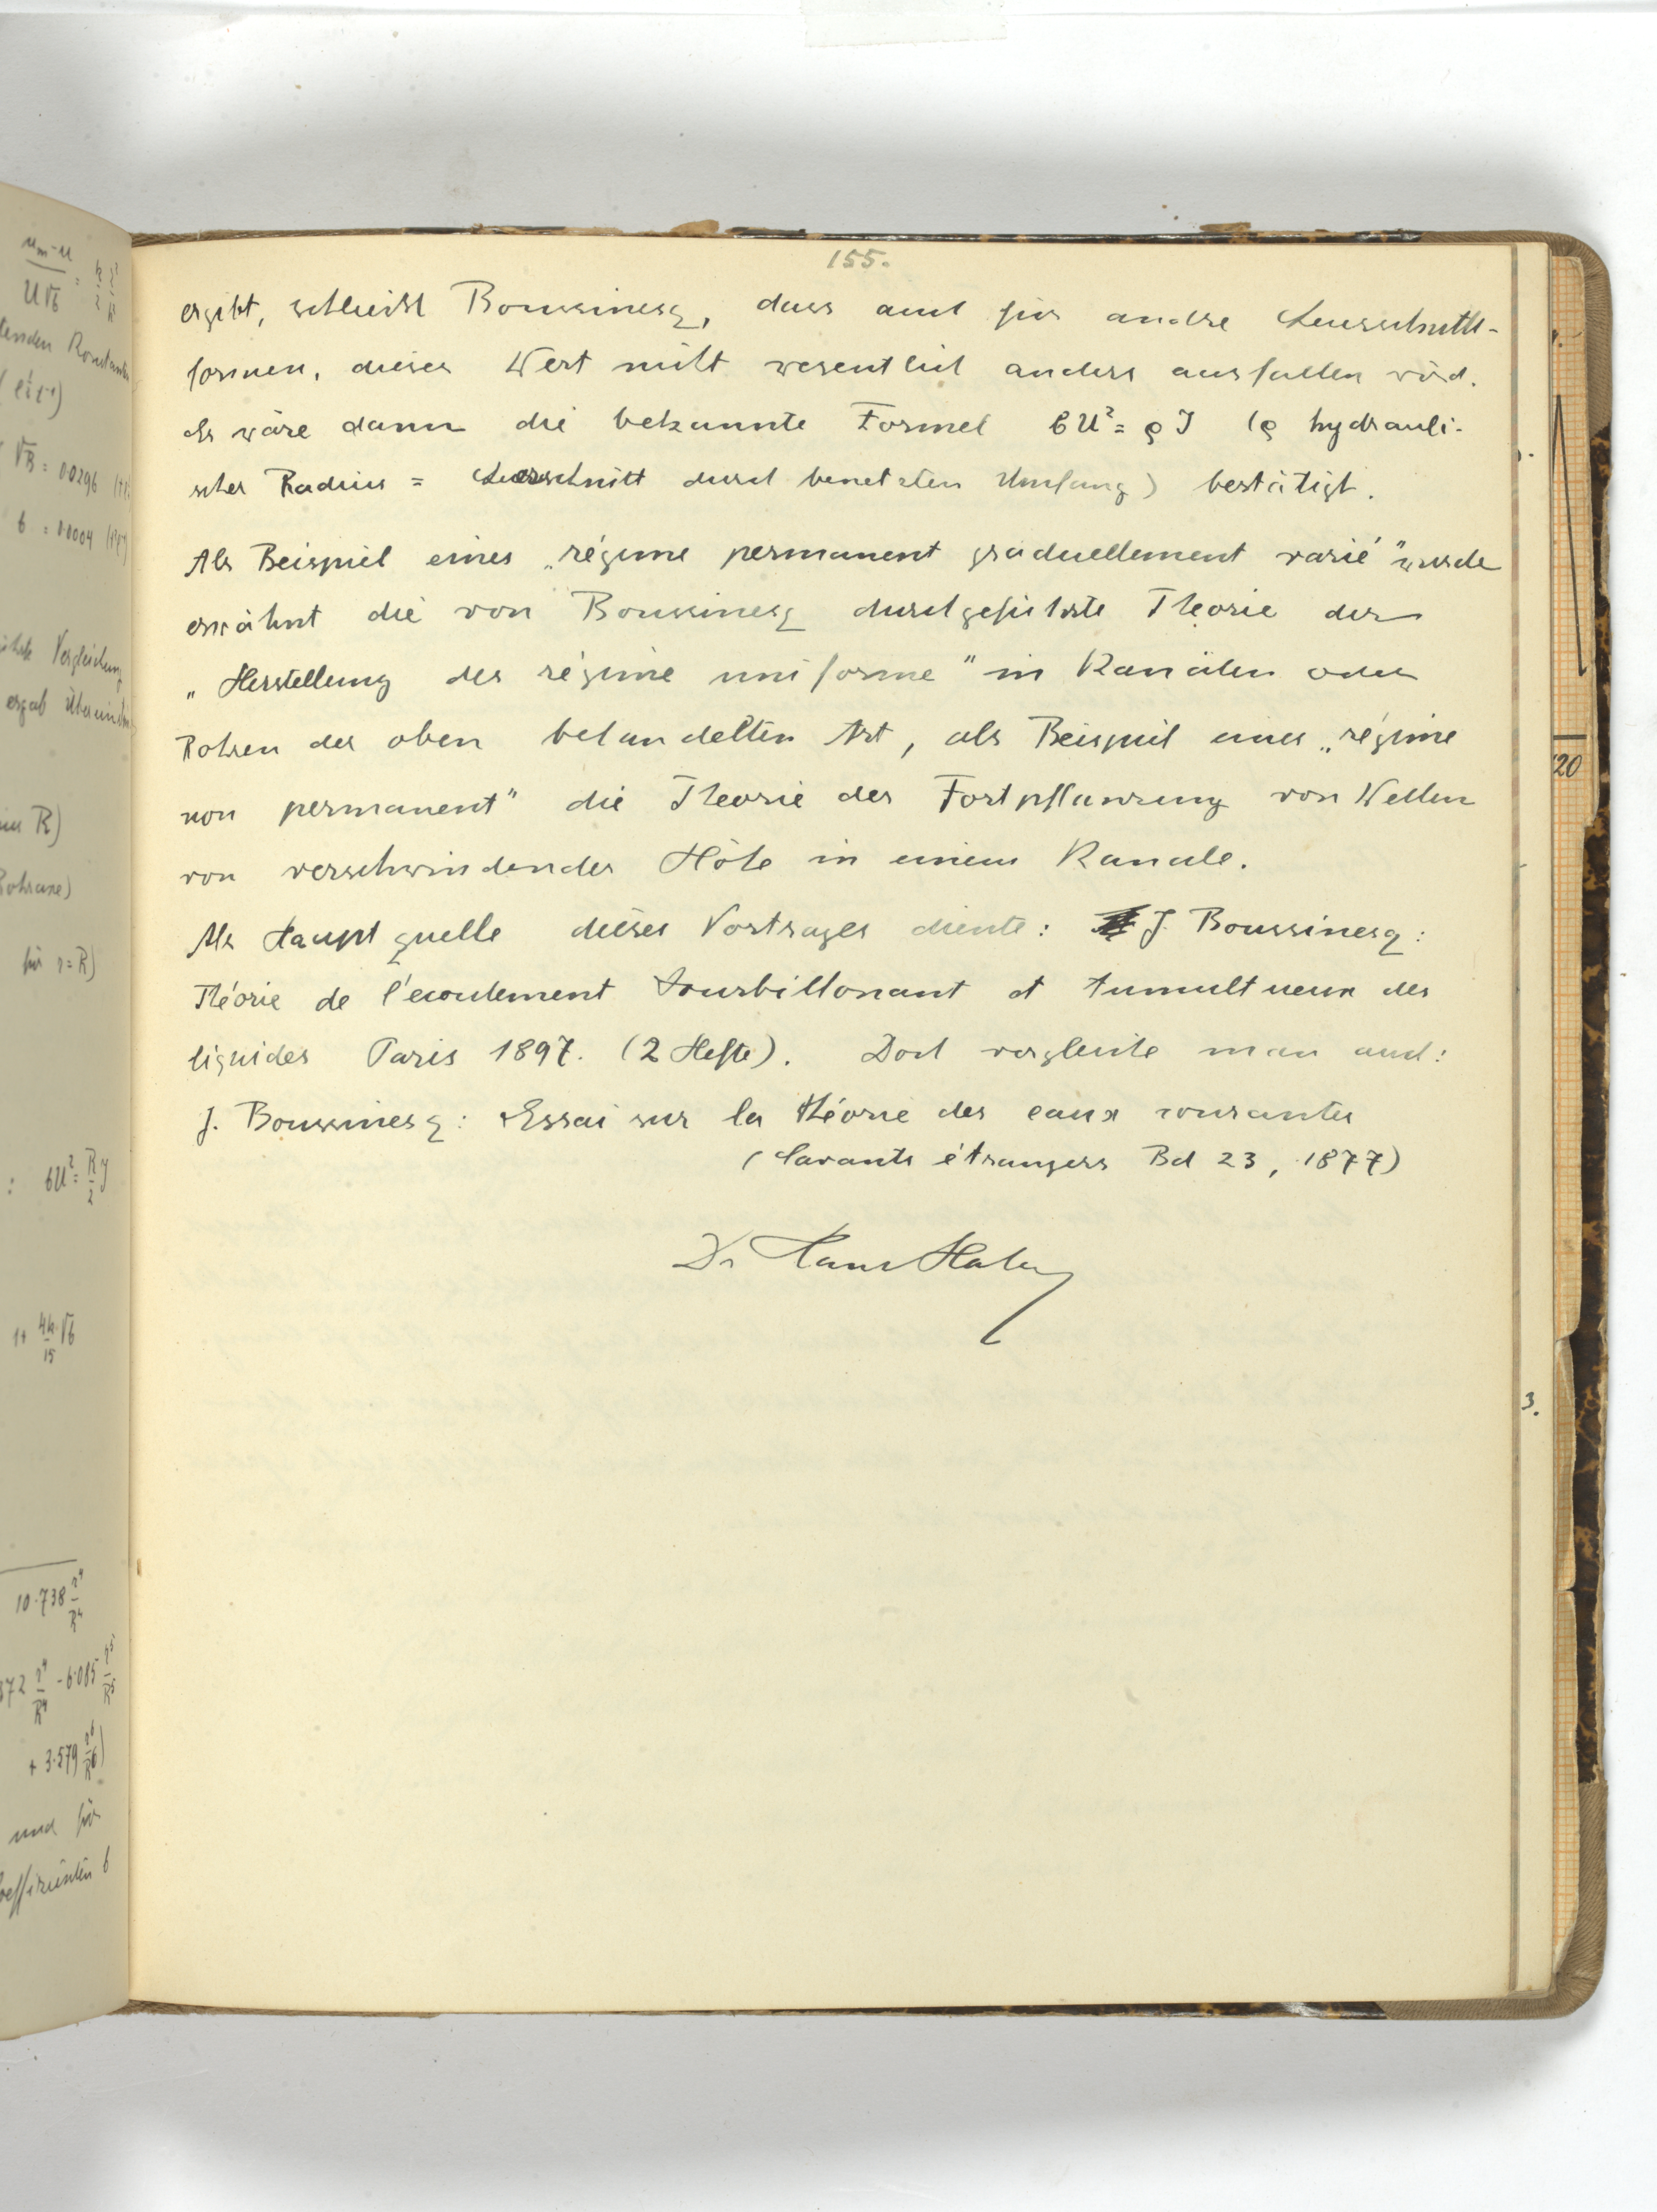 155.
ergibt, schließt Boussinesq, dass auch für andre Querschnitts-
formen, dieser Wert nicht wesentlich anders ausfallen wird.
Es wäre dann die bekannte Formel bU² = ρ J (ρ hydrauli-
scher Radius = Querschnitt durch benetzten Umfang) bestätigt.
Als Beispiel eines „régime permanent graduellement varié" wurde
erwähnt die von Boussinesq durchgeführte Theorie der
„Herstellung des régime uniforme" in Kanälen oder
Rohren der oben behandelten Art, als Beispiel eines „régime
non permanent" die Theorie der Fortpflanzung von Wellen
von verschwindender Höhe in einem Kanale.
Als Hauptquelle dieses Vortrages diente: J. Boussinesq:
Théorie de l'écoulement tourbillonant et tumultueux des
liquides Paris 1897. (2 Hefte). Dort vergleiche man auch:
J. Boussinesq: Essai sur la théorie des eaux courantes
(Savants étrangers Bd 23, 1877)
Dr Hans Hahn
uₘ-u
U√b
Konstanten
√B = 0.0296
b = 0.0004
Vergleichung
ergab
R)
Rohraxe)
für r=R)
: bU² = R/2 J
1+ 4k/15 √b
10.738 r⁴/R⁴
372 r⁴/R⁴ - 6.085 r⁵/R⁵
+ 3.579 r⁶/R⁶)
und für
Coeffizienten b
20
3.